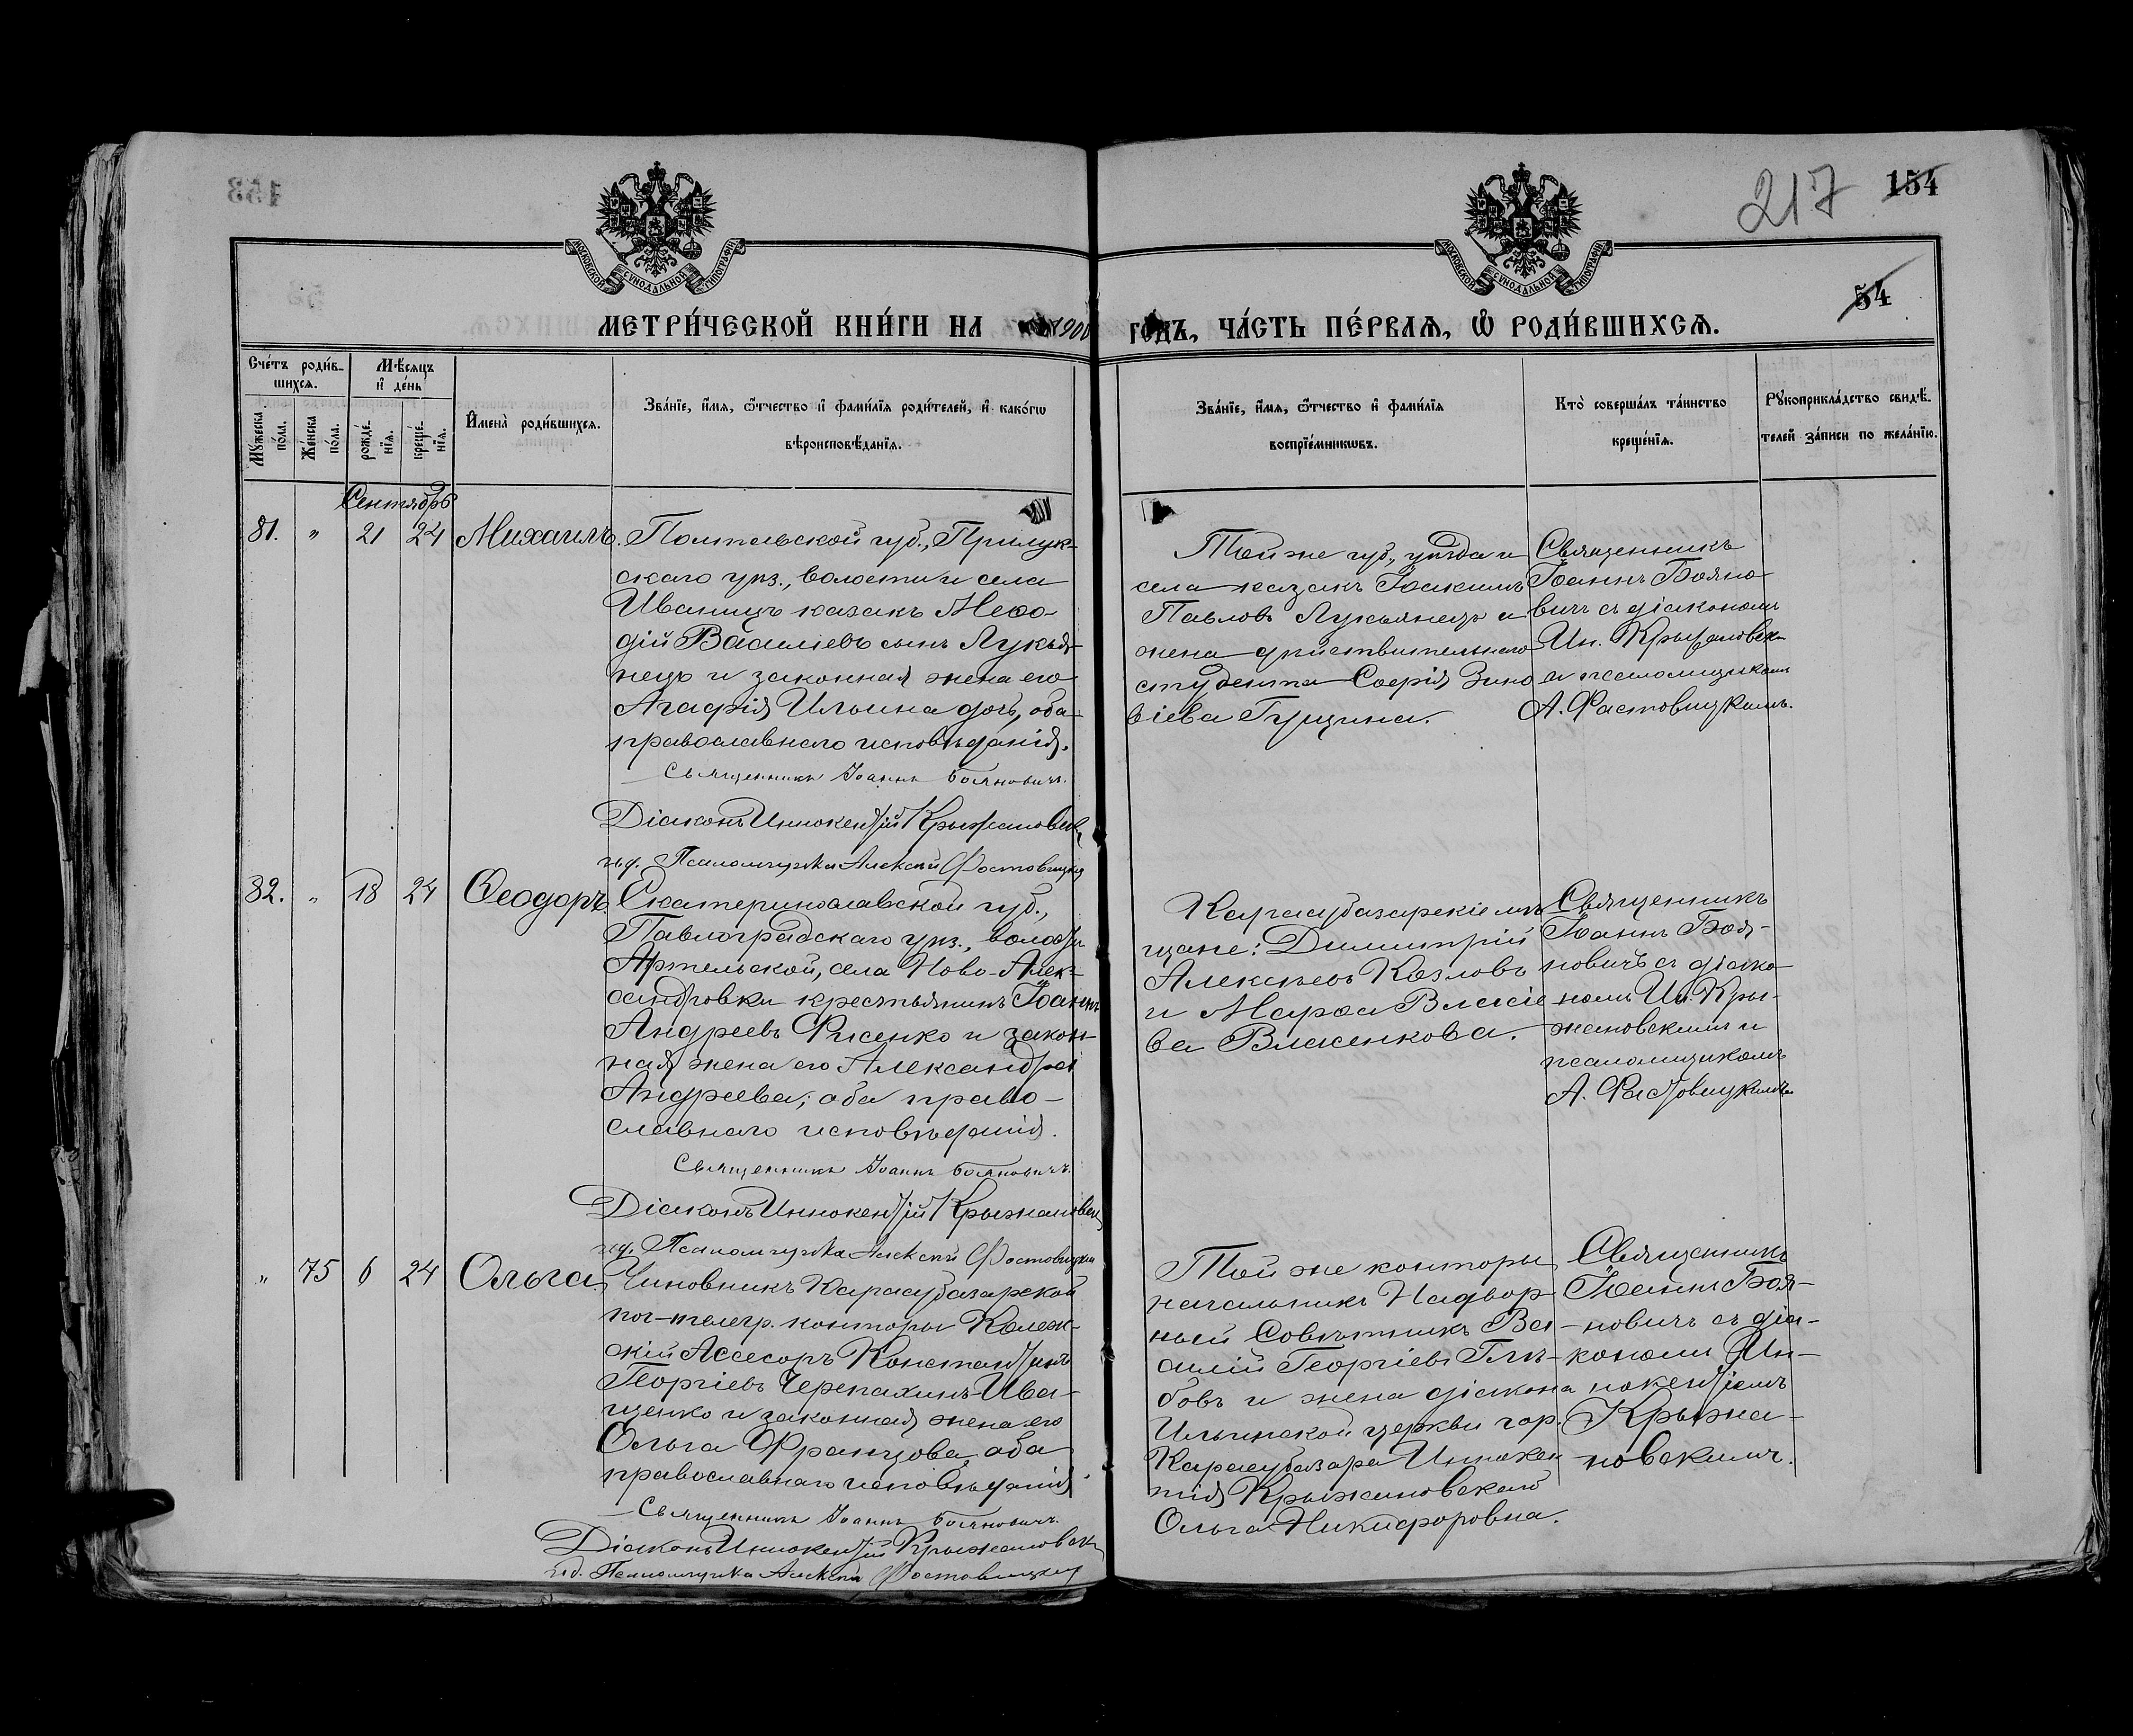 217 154
54
МОСКОВСКОЙ СѴНОДАЛЬНОЙ ТИПОГРАФІИ
МОСКОВСКОЙ СѴНОДАЛЬНОЙ ТИПОГРАФІИ
МЕТРИ́ЧЕСКОЙ КНИ́ГИ НА 1900 ГОДЪ, ЧА́СТЬ ПЕ́РВАѦ, Ѡ РОДИ́ВШИХСѦ.
Сче́тъ роди́в-
шихсѧ.
Мꙋ́жеска
по́ла.
Же́нска
по́ла.
Мѣ́сѧцъ
и҆ де́нь
рожде́-
нїѧ.
креще́-
нїѧ.
И҆мена̀ роди́вшихсѧ.
Зва́нїе, и҆́мѧ, ѻ҆́тчество и҆ фами́лїѧ роди́телей, и҆ како́гѡ
вѣроисповѣ́данїѧ.
Зва́нїе, и҆́мѧ, ѻ҆́тчество и҆ фами́лїѧ
воспрїе́мникѡвъ.
Кто̀ соверша́лъ та́инство
креще́нїѧ.
Рꙋкоприкла́дство свидѣ́-
телей за́писи по жела́нїю.
Сентябрь
81. " 21 24 Михаилъ.
Полтавской губ., Прилук-
скаго уѣз., волости и села
Иваницъ казакъ Меѳо-
дій Василіевъ сынъ Лукья-
нецъ и законная жена его
Агафія Ильина дочь, оба
православнаго исповѣданія.
Священникъ Іоаннъ Бояновичъ.
Діаконъ Иннокентій Крыжановск
и.д. Псаломщика Алексѣй Фастовицкій
Той же губ., уѣзда и
села казакъ Іоакимъ
Павловъ Лукьянецъ и
жена дѣйствительнаго
студента Софія Зино
віева Гущина.
Священникъ
Іоаннъ Бояно
вичъ съ діакономъ
Ин. Крыжановск
и псаломщикомъ
А. Фастовицкимъ.
82. " 18 24 Ѳеодоръ.
Екатеринославской губ.,
Павлоградскаго уѣз., волости
Артельской, села Ново-Алек-
сандровки крестьянинъ Іоаннъ
Андреевъ Фисенко и закон-
ная жена его Александра
Андреева; оба право-
славнаго исповѣданія.
Священникъ Іоаннъ Бояновичъ.
Діаконъ Иннокентій Крыжановск
и.д. Псаломщика Алексѣй Фастовицкій
Карасубазарскіе мѣ
щане: Димитрій
Алексѣевъ Козловъ
и Марѳа Власіе
ва Власенкова.
Священникъ
Іоаннъ Боя-
новичъ съ діако-
номъ Ин. Кры-
жановскимъ и
псаломщикомъ
А. Фастовицкимъ
" 75 6 24 Ольга.
Чиновникъ Карасубазарской
поч-телегр. конторы Колеж-
скій Ассесоръ Константинъ
Георгіевъ Черепахинъ-Ива-
щенко и законная жена его
Ольга Францова, оба
православнаго исповѣданія.
Священникъ Іоаннъ Бояновичъ.
Діаконъ Иннокентій Крыжановск
и.д. Псаломщика Алексѣй Фастовицкій
Той же конторы
начальникъ Надвор-
ный Совѣтникъ Ва-
силій Георгіевъ Глѣ-
бовъ и жена діакона
Ильинской церкви гор.
Карасубазара Иннокен
тія Крыжановскаго
Ольга Никифоровна.
Священникъ
Іоаннъ Боя-
новичъ съ діа-
кономъ Ин-
нокентіемъ
Крыжа-
новскимъ.